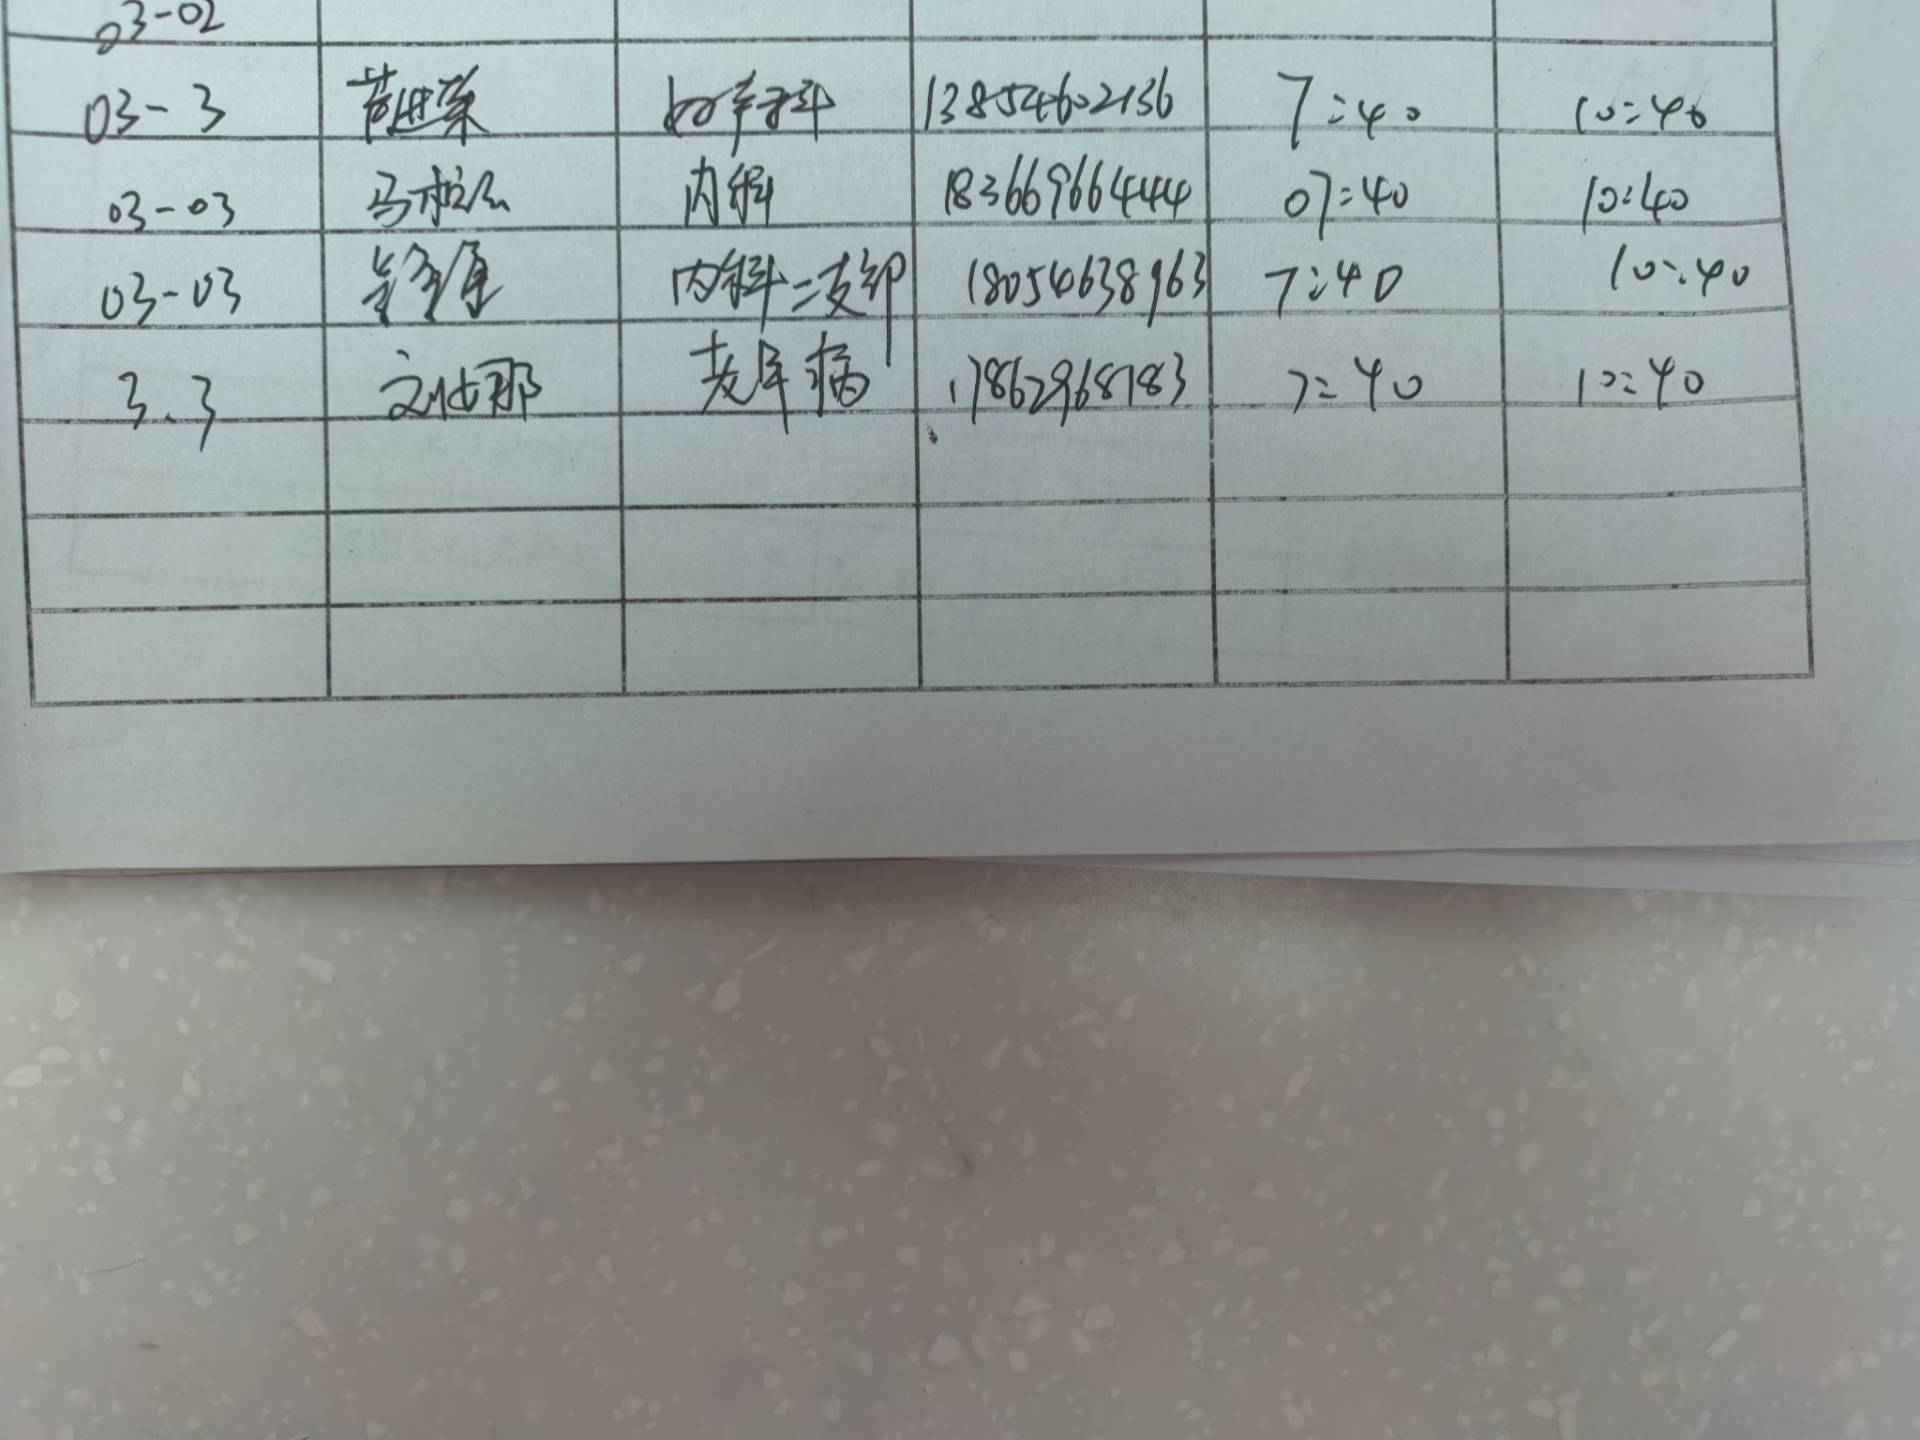 03-02
03-3 苗进荣 妇产科 13854602136 7:40 10:40
03-03 马 内科 18366966444 07:40 10:40
03-03 内科二支部 18054638963 7:40 10:40
3.3 刘娜 老年病 17862968783 7:40 10:40